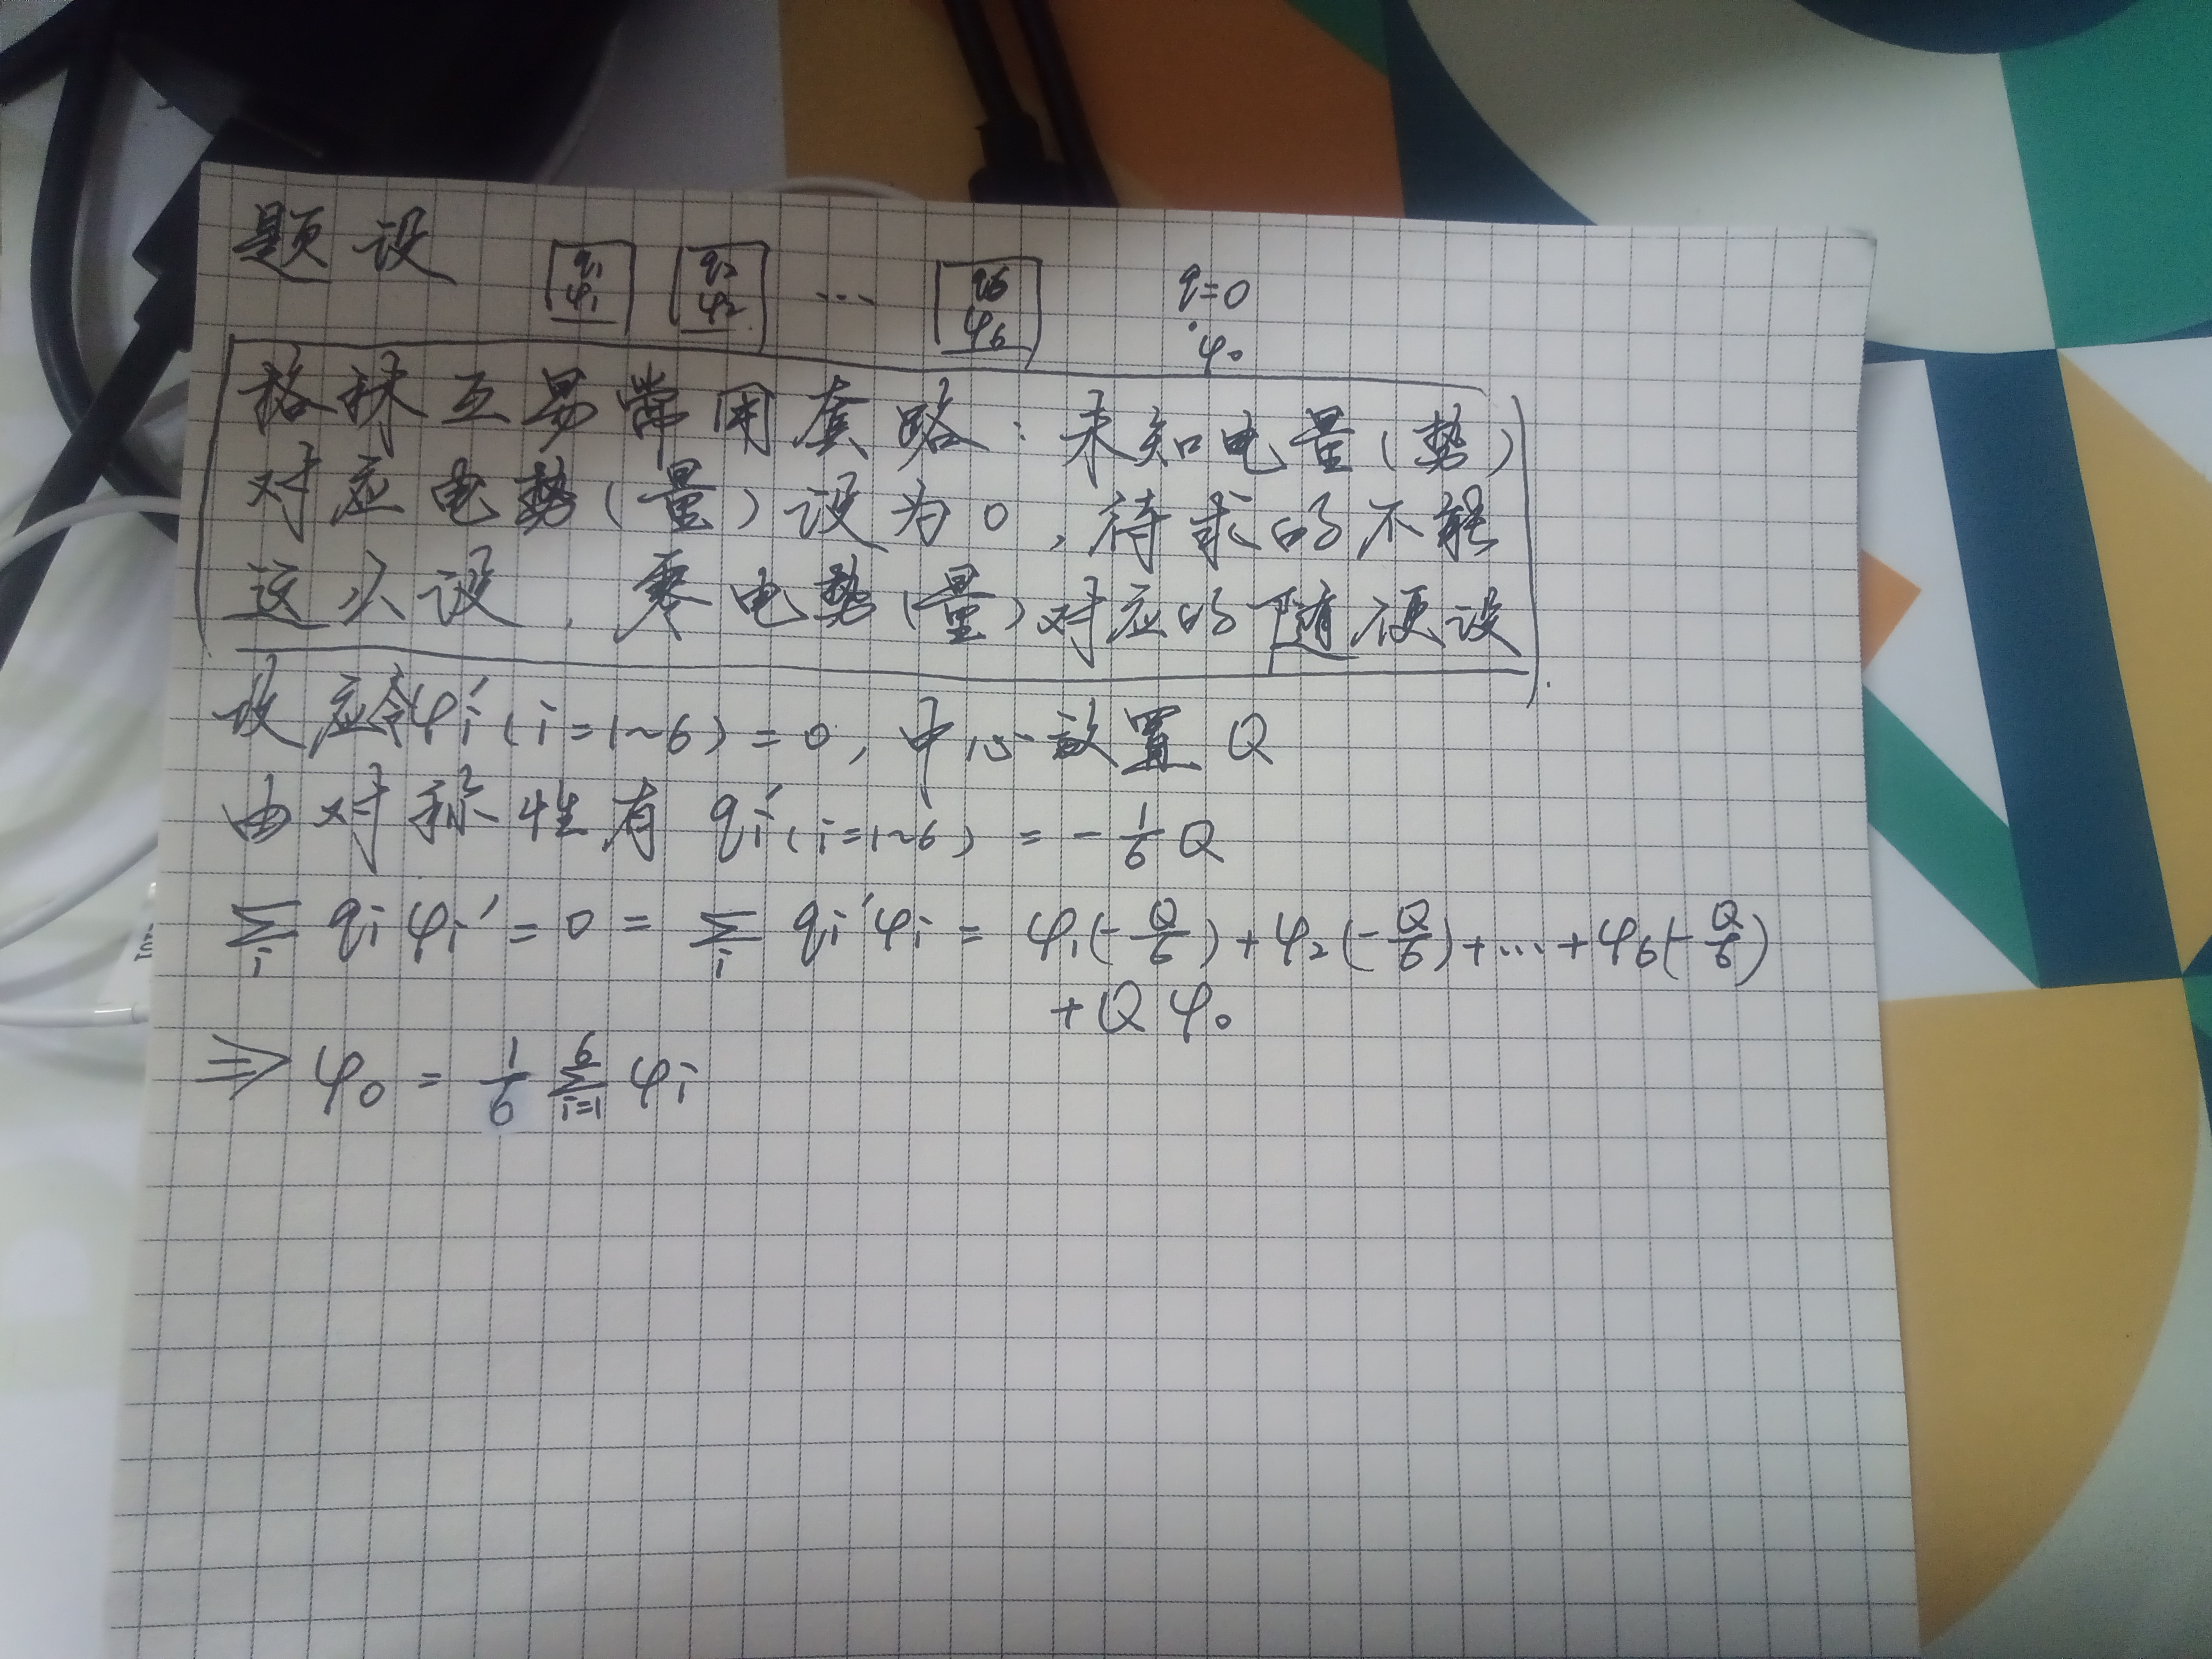 题设 q₁ φ₁ q₂ φ₂ ... q₆ φ₆ q=0 φ₀
格林互易常用套路：未知电量(势)
对应电势(量)设为0，待求的不能
这么设，零电势(量)对应的随便设
故应令φᵢ'(i=1~6)=0，中心放置Q
由对称性有 qᵢ'(i=1~6) = -1/6 Q
∑ᵢ qᵢφᵢ' = 0 = ∑ᵢ qᵢ'φᵢ = φ₁(-Q/6)+φ₂(-Q/6)+...+φ₆(-Q/6)
+Qφ₀
⇒ φ₀ = 1/6 ∑ᵢ₌₁⁶ φᵢ